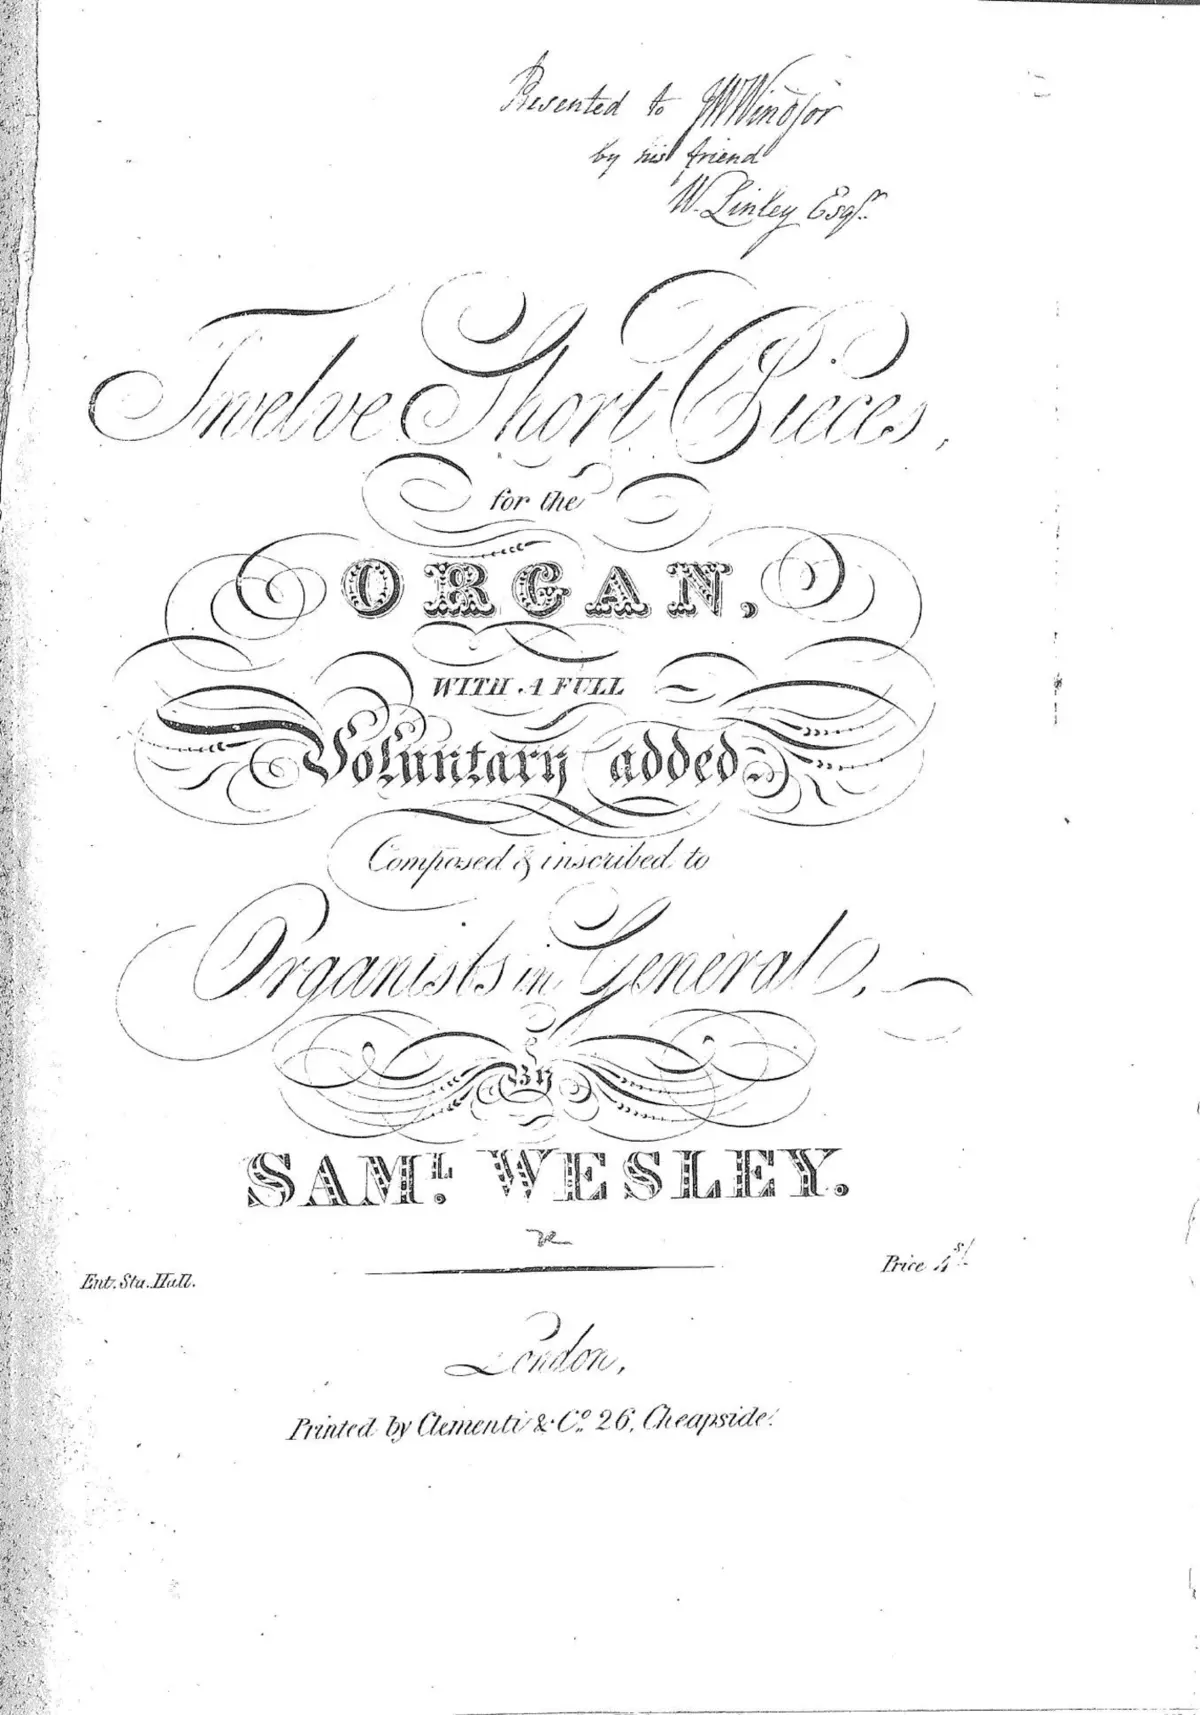 Presented to JW Windsor
by his friend
W. Linley Esqr.
Twelve Short Pieces,
for the
ORGAN,
WITH A FULL
Voluntary added
Composed & inscribed to
Organists in General,
By
SAML. WESLEY.
Ent. Sta. Hall.
Price 4s/.
London,
Printed by Clementi & Co. 26, Cheapside.